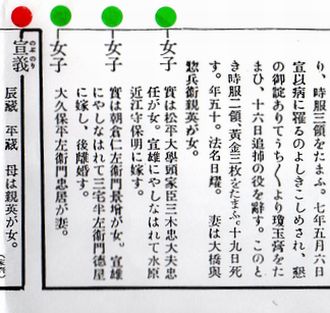 り、時服三領をたまふ。七年五月六日
宣以病に罹るのよしきこしめされ、懇
の御諚ありてうち〳〵より瓊玉膏をた
まひ、十六日追捕の役を辭す。このと
き時服二領、黃金三枚をたまふ。十九日死
す。年五十。法名日耀。　妻は大橋與
惣兵衞親英が女。
女子
實は松平大學頭家臣三木忠大夫忠
任が女。宣雄にやしなはれて水原
近江守保明に嫁す。
女子
實は朝倉仁左衞門景增が女。宣雄
にやしなはれて三宅半左衞門德屋
に嫁し、後離婚す。
女子
大久保平左衞門忠居が妻。
宣義
のぶのり
辰藏　平藏　母は親英が女。